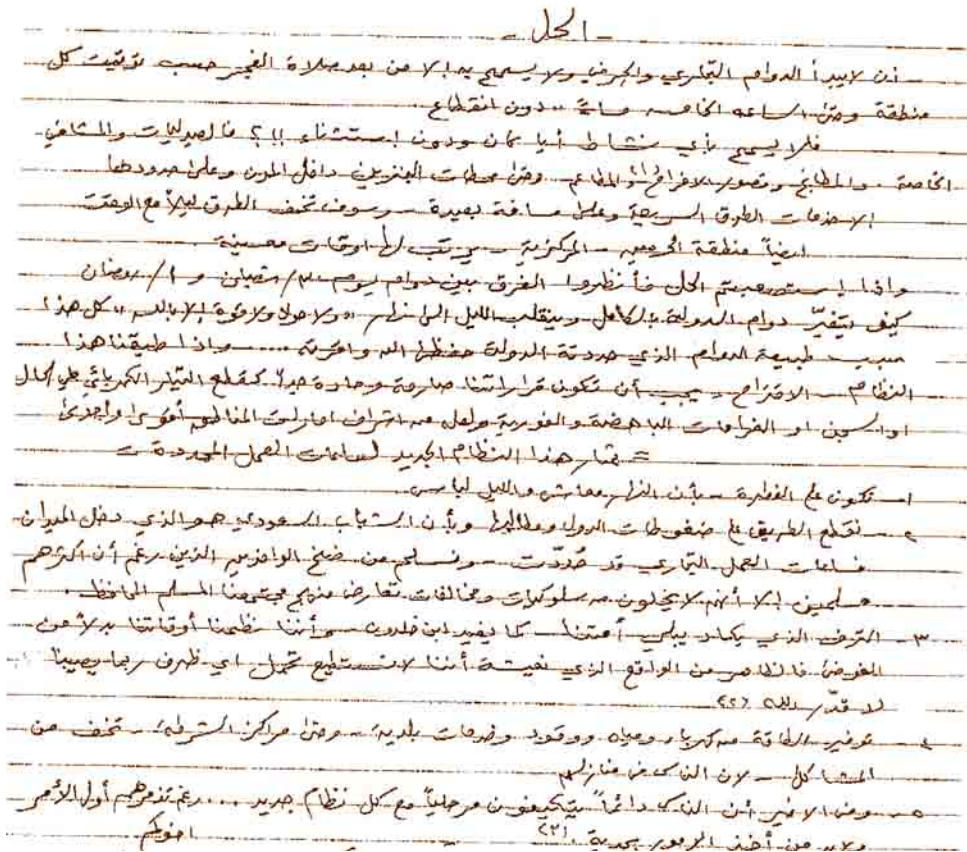 - الحل -
- أن لا يبدأ الدوام التجاري والحرفي ولا يسمح به إلا من بعد صلاة الفجر حسب توقيت كل
منطقة وحتى الساعه الخامسه مساءً دون انقطاع
فلا يسمح بأي نشاط أيا كان ودون إستثناء !!؟ فالصيدليات والمشافي
الخاصة - والمطابخ وقصور الافراح والمطاعم - وحتى محطات البنزين داخل المدن وعلى حدودها
إلا خدمات الطرق السريعة وعلى مسافة بعيدة - وسوف تخف الطرق ليلاً مع الوقت
ايضاً منطقة الحرمين - المركزية - يرتب لها اوقات معينة -
واذا إستصعبتم الحل فأنظروا الفرق بين دوام يوم ٣٠/شعبان و ١/رمضان
كيف يتغيّر دوام الدولة بالكامل وينقلب الليل الى نهار "ولا حول ولا قوة إلا بالله" كل هذا
بسبب طبيعة الدوام الذي حددتة الدولة حفظها الله واقرته .... واذا طبقنا هذا
النظام - الاقتراح - يجب أن تكون قراراتنا صارمة وحادة جداً كقطع التيار الكهربائي على المحال
او السجن او الغرامات الباهضة والفورية ولعل من اشراف امارات المناطق أقوى واجدى
= ثمار هذا النظام الجديد لساعات العمل المحددة =
١- تكون على الفطرة - بأن النهار معاش والليل لباس
٢- نقطع الطريق على ضغوطات الدول ومطالبها وبأن الشباب السعودي هو الذي دخل الميدان
فساعات العمل التجاري قد حُدّدت - ونسلم من ضخ الوافدين الذين رغم أن اكثرهم
مسلمين إلا أنهم لا يخلون من سلوكيات ومخالفات تعارض منهج مجتمعنا المسلم المحافظ.
٣- الترف الذي يكاد يبلي أمتنا - كما يفيد ابن خلدون - وأننا نظمنا أوقاتنا بدلاً من
الفوضى فالظاهر من الواقع الذي نعيشة أننا لا نستطيع تحمل اي ظرف ربما يصيبنا
لا قدّر الله
٤- توفير الطاقة من كهرباء ومياه ووقود وخدمات بلدية - وحتى مراكز الشرطة - تخف من
المشاكل - لان الناس في منازلهم
٥- وفي الاخير أن الناس دائماً يتكيفون مرحلياً مع كل نظام جديد ... رغم تذمرهم أول الأمر
ولابد من أخذ الامور بجدية
اخوكم